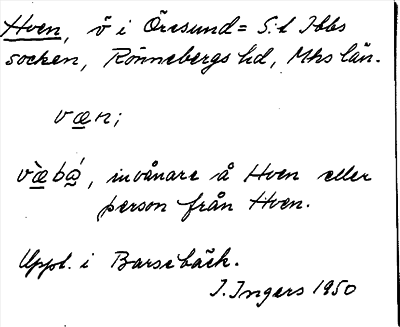 Hven, ö i Öresund = S:t Ibbs
socken, Rönnebergs hd, Mhs län.
væn;
væ̀bá̰, invånare å Hven eller
person från Hven.
Uppt. i Barsebäck.
I. Ingers 1950